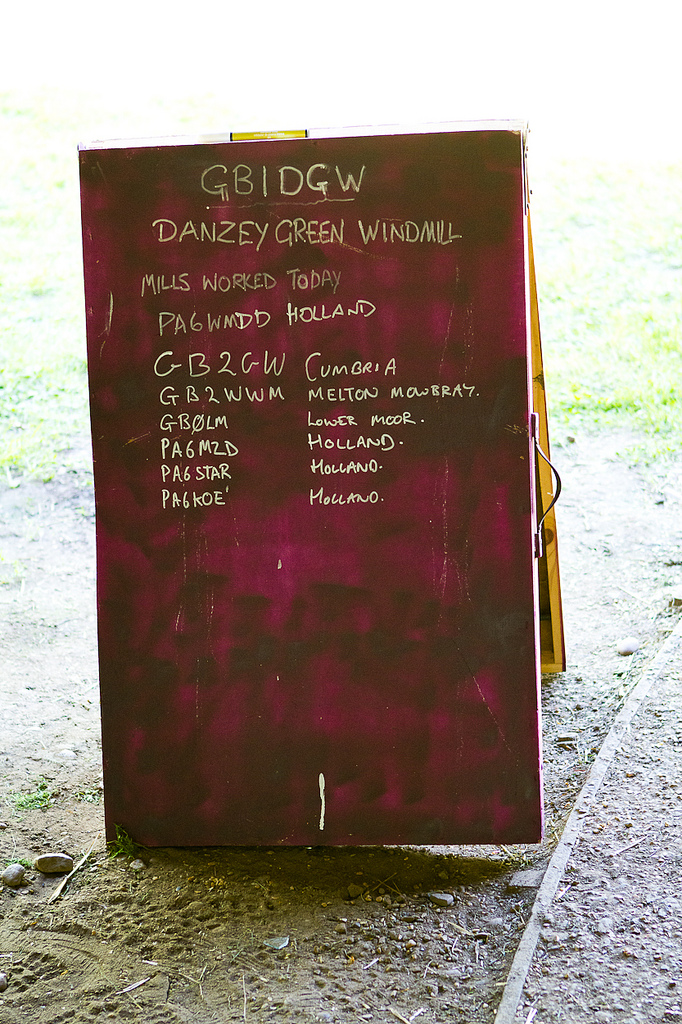 GB1DGW
DANZEY GREEN WINDMILL
MILLS WORKED TODAY
PA6WMDD HOLLAND
GB2GW CUMBRIA
GB2WWM MELTON MOWBRAY.
GBØLM LOWER MOOR.
PA6MZD HOLLAND.
PA6STAR HOLLAND.
PA6KOE' HOLLAND.